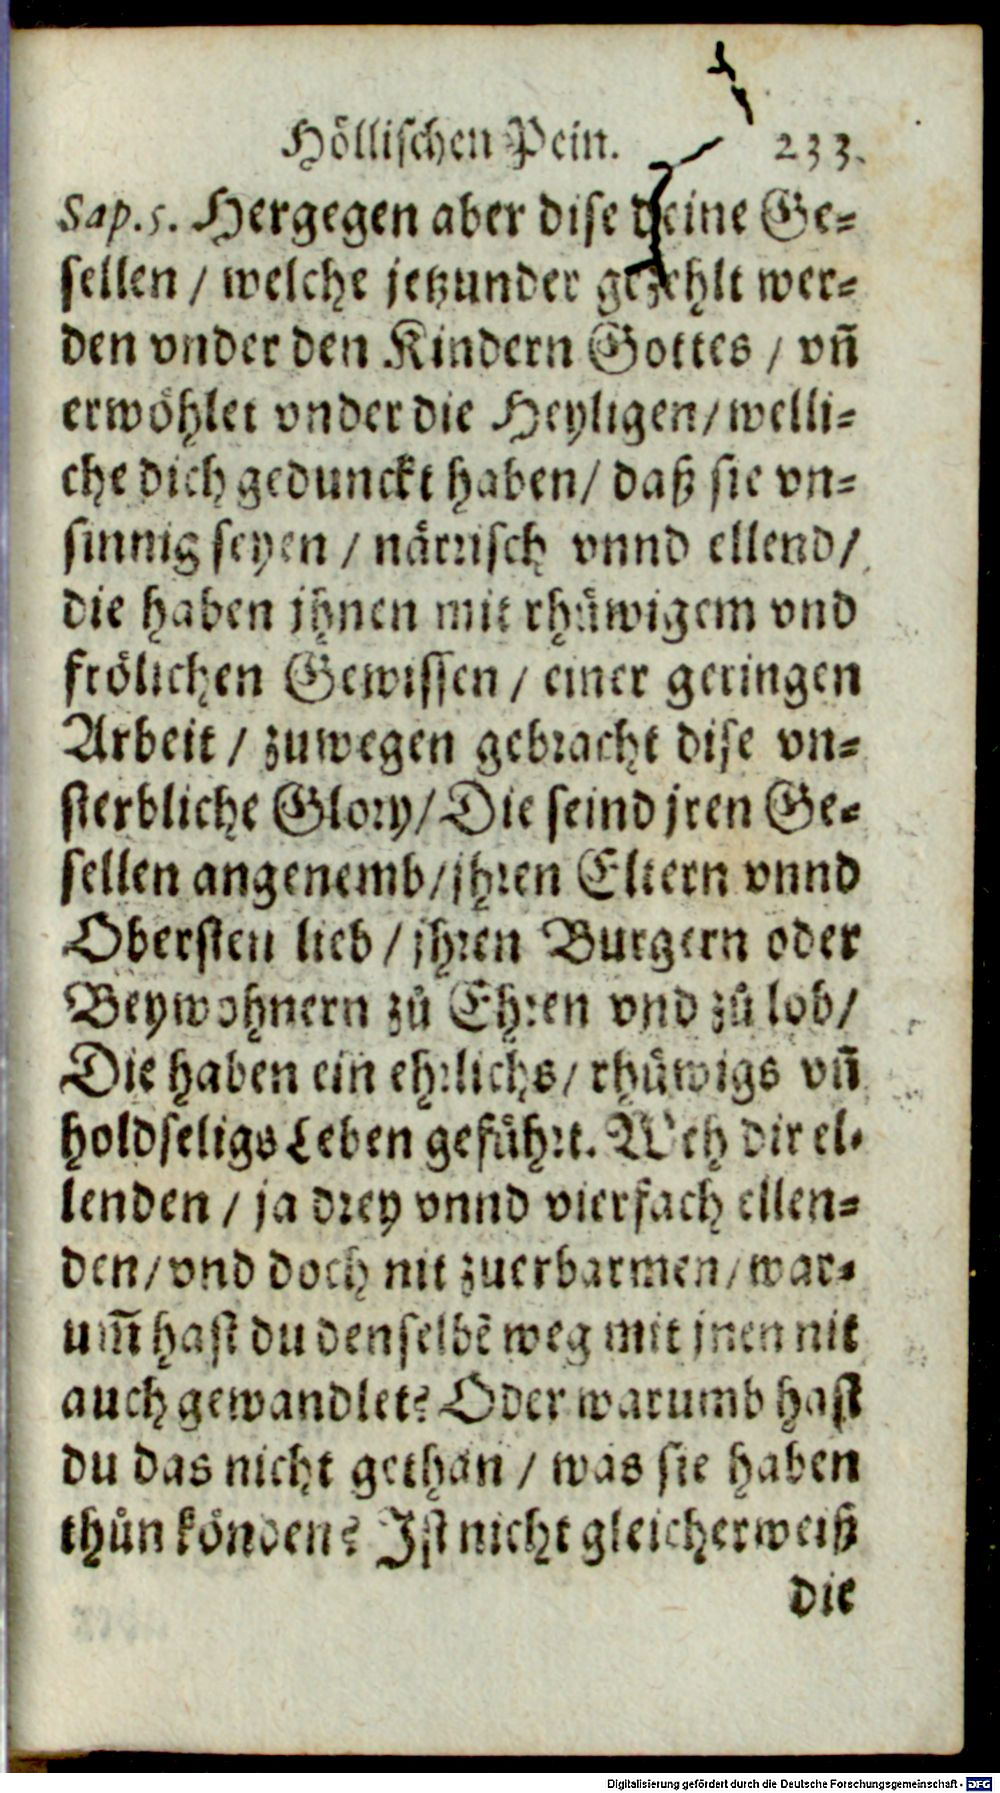 Höllischen Pein. 233.
Sap. 5. Hergegen aber dise deine Ge-
sellen / welche jetzunder gezehlt wer-
den vnder den Kindern Gottes / vn̄
erwöhlet vnder die Heyligen / welli-
che dich gedunckt haben / daß sie vn-
sinnig seyen / närrisch vnnd ellend /
die haben jhnen mit rhüwigem vnd
frölichen Gewissen / einer geringen
Arbeit / zuwegen gebracht dise vn-
sterbliche Glory / Die seind jren Ge-
sellen angenemb / jhren Eltern vnnd
Obersten lieb / jhren Burgern oder
Beywohnern zů Ehren vnd zů lob /
Die haben ein ehrlichs / rhüwigs vn̄
holdseligs Leben geführt. Weh dir el-
lenden / ja drey vnnd vierfach ellen-
den / vnd doch nit zuerbarmen / war-
um̄ hast du denselbē weg mit jnen nit
auch gewandlet? Oder warumb hast
du das nicht gethan / was sie haben
thůn könden? Ist nicht gleicherweiß
die
Digitalisierung gefördert durch die Deutsche Forschungsgemeinschaft - DFG